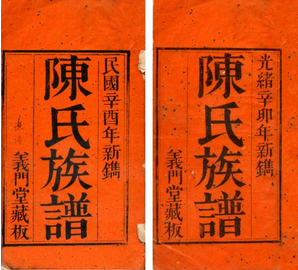 民國辛酉年新鐫
陳氏族譜
義門堂藏板
光緒辛卯年新鐫
陳氏族譜
義門堂藏板